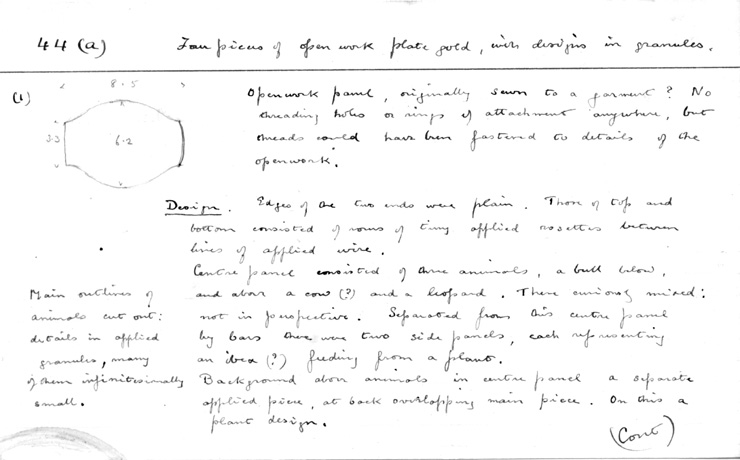 44 (a) Four pieces of open work plate gold, with designs in granules.
(1)
8.5
3.3
6.2
Openwork panel, originally sewn to a garment? No
threading holes or rings of attachment anywhere, but
threads could have been fastened to details of the
openwork.
Design. Edges of the two ends were plain. Those of top and
bottom consisted of rows of tiny applied rosettes between
lines of applied wire.
Centre panel consisted of three animals, a bull below,
and above a cow (?) and a leopard. These curiously mixed:
not in perspective. Separated from this centre panel
by bars there were two side panels, each representing
an ibex (?) feeding from a plant.
Background above animals in centre panel a separate
applied piece, at back overlapping main piece. On this a
plant design.
Main outlines of
animals cut out:
details in applied
granules, many
of them infinitesimally
small.
(Cont)